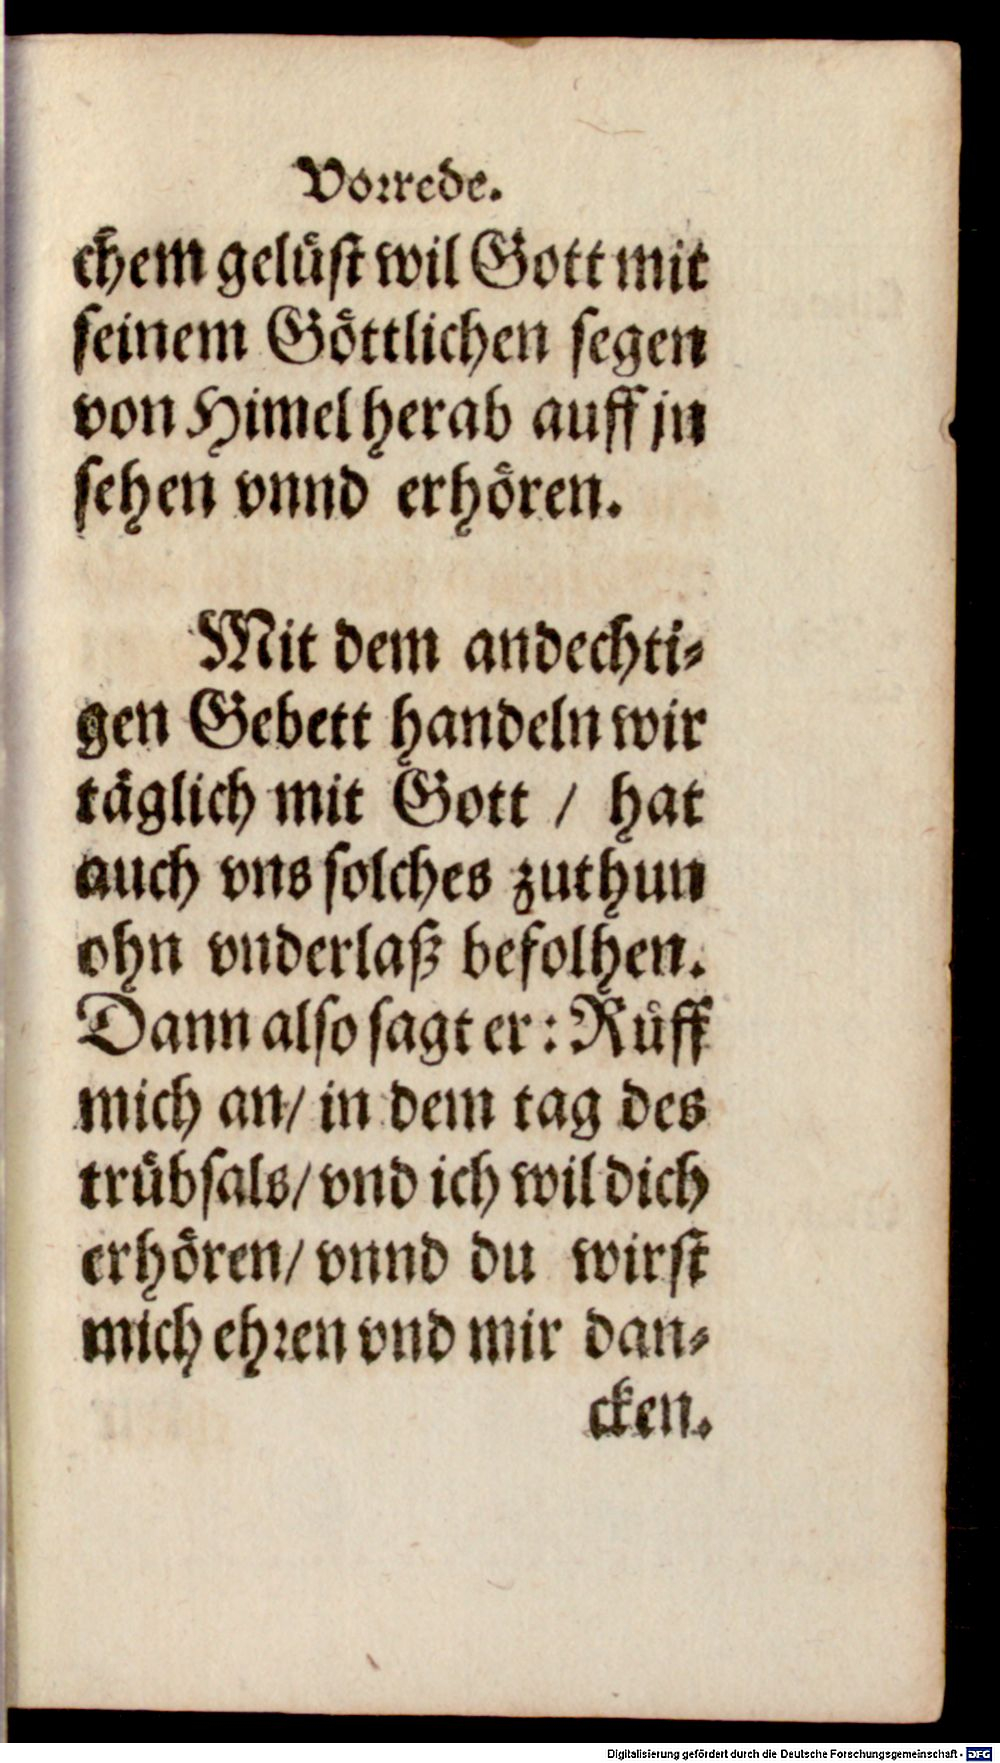 Vorrede.
chem gelüſt wil Gott mit
ſeinem Göttlichen ſegen
von Himel herab auff jn
ſehen vnnd erhören.
Mit dem andechti⸗
gen Gebett handeln wir
täglich mit Gott / hat
auch vns ſolches zuthun
ohn vnderlaß befolhen.
Dann alſo ſagt er: Rüff
mich an/ in dem tag des
trübſals/ vnd ich wil dich
erhören/ vnnd du wirſt
mich ehren vnd mir dan⸗
cken.
Digitalisierung gefördert durch die Deutsche Forschungsgemeinschaft - DFG